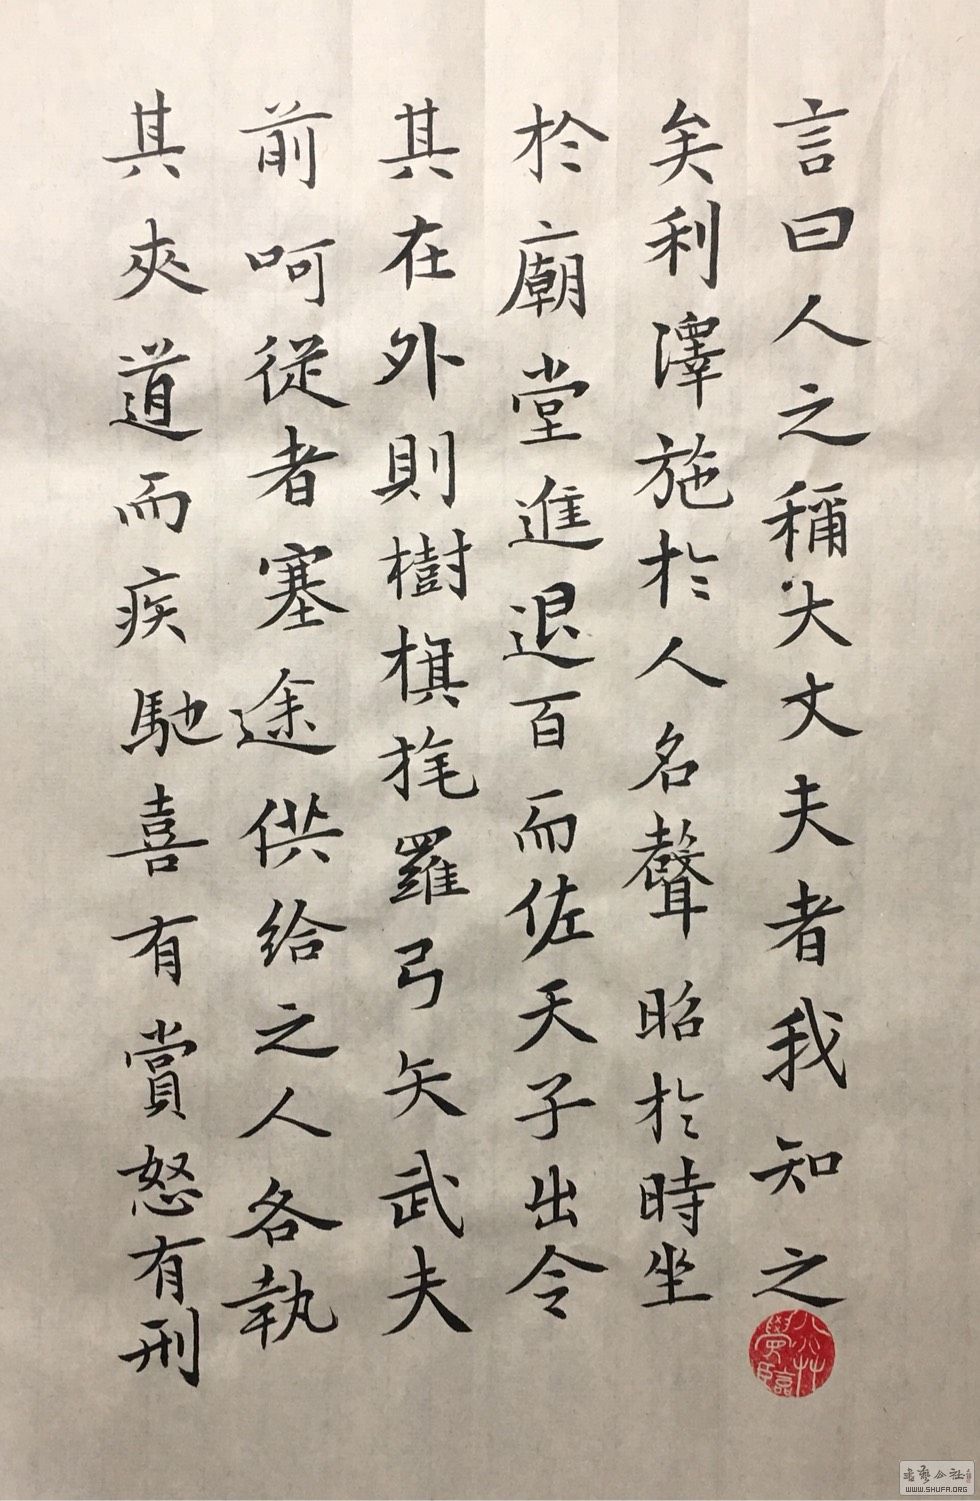 言曰人之稱大丈夫者我知之
矣利澤施於人名聲昭於時坐
於廟堂進退百而佐天子出令
其在外則樹旗旄羅弓矢武夫
前呵從者塞途供給之人各執
其夾道而疾馳喜有賞怒有刑
書藝公社
WWW.SHUFA.ORG